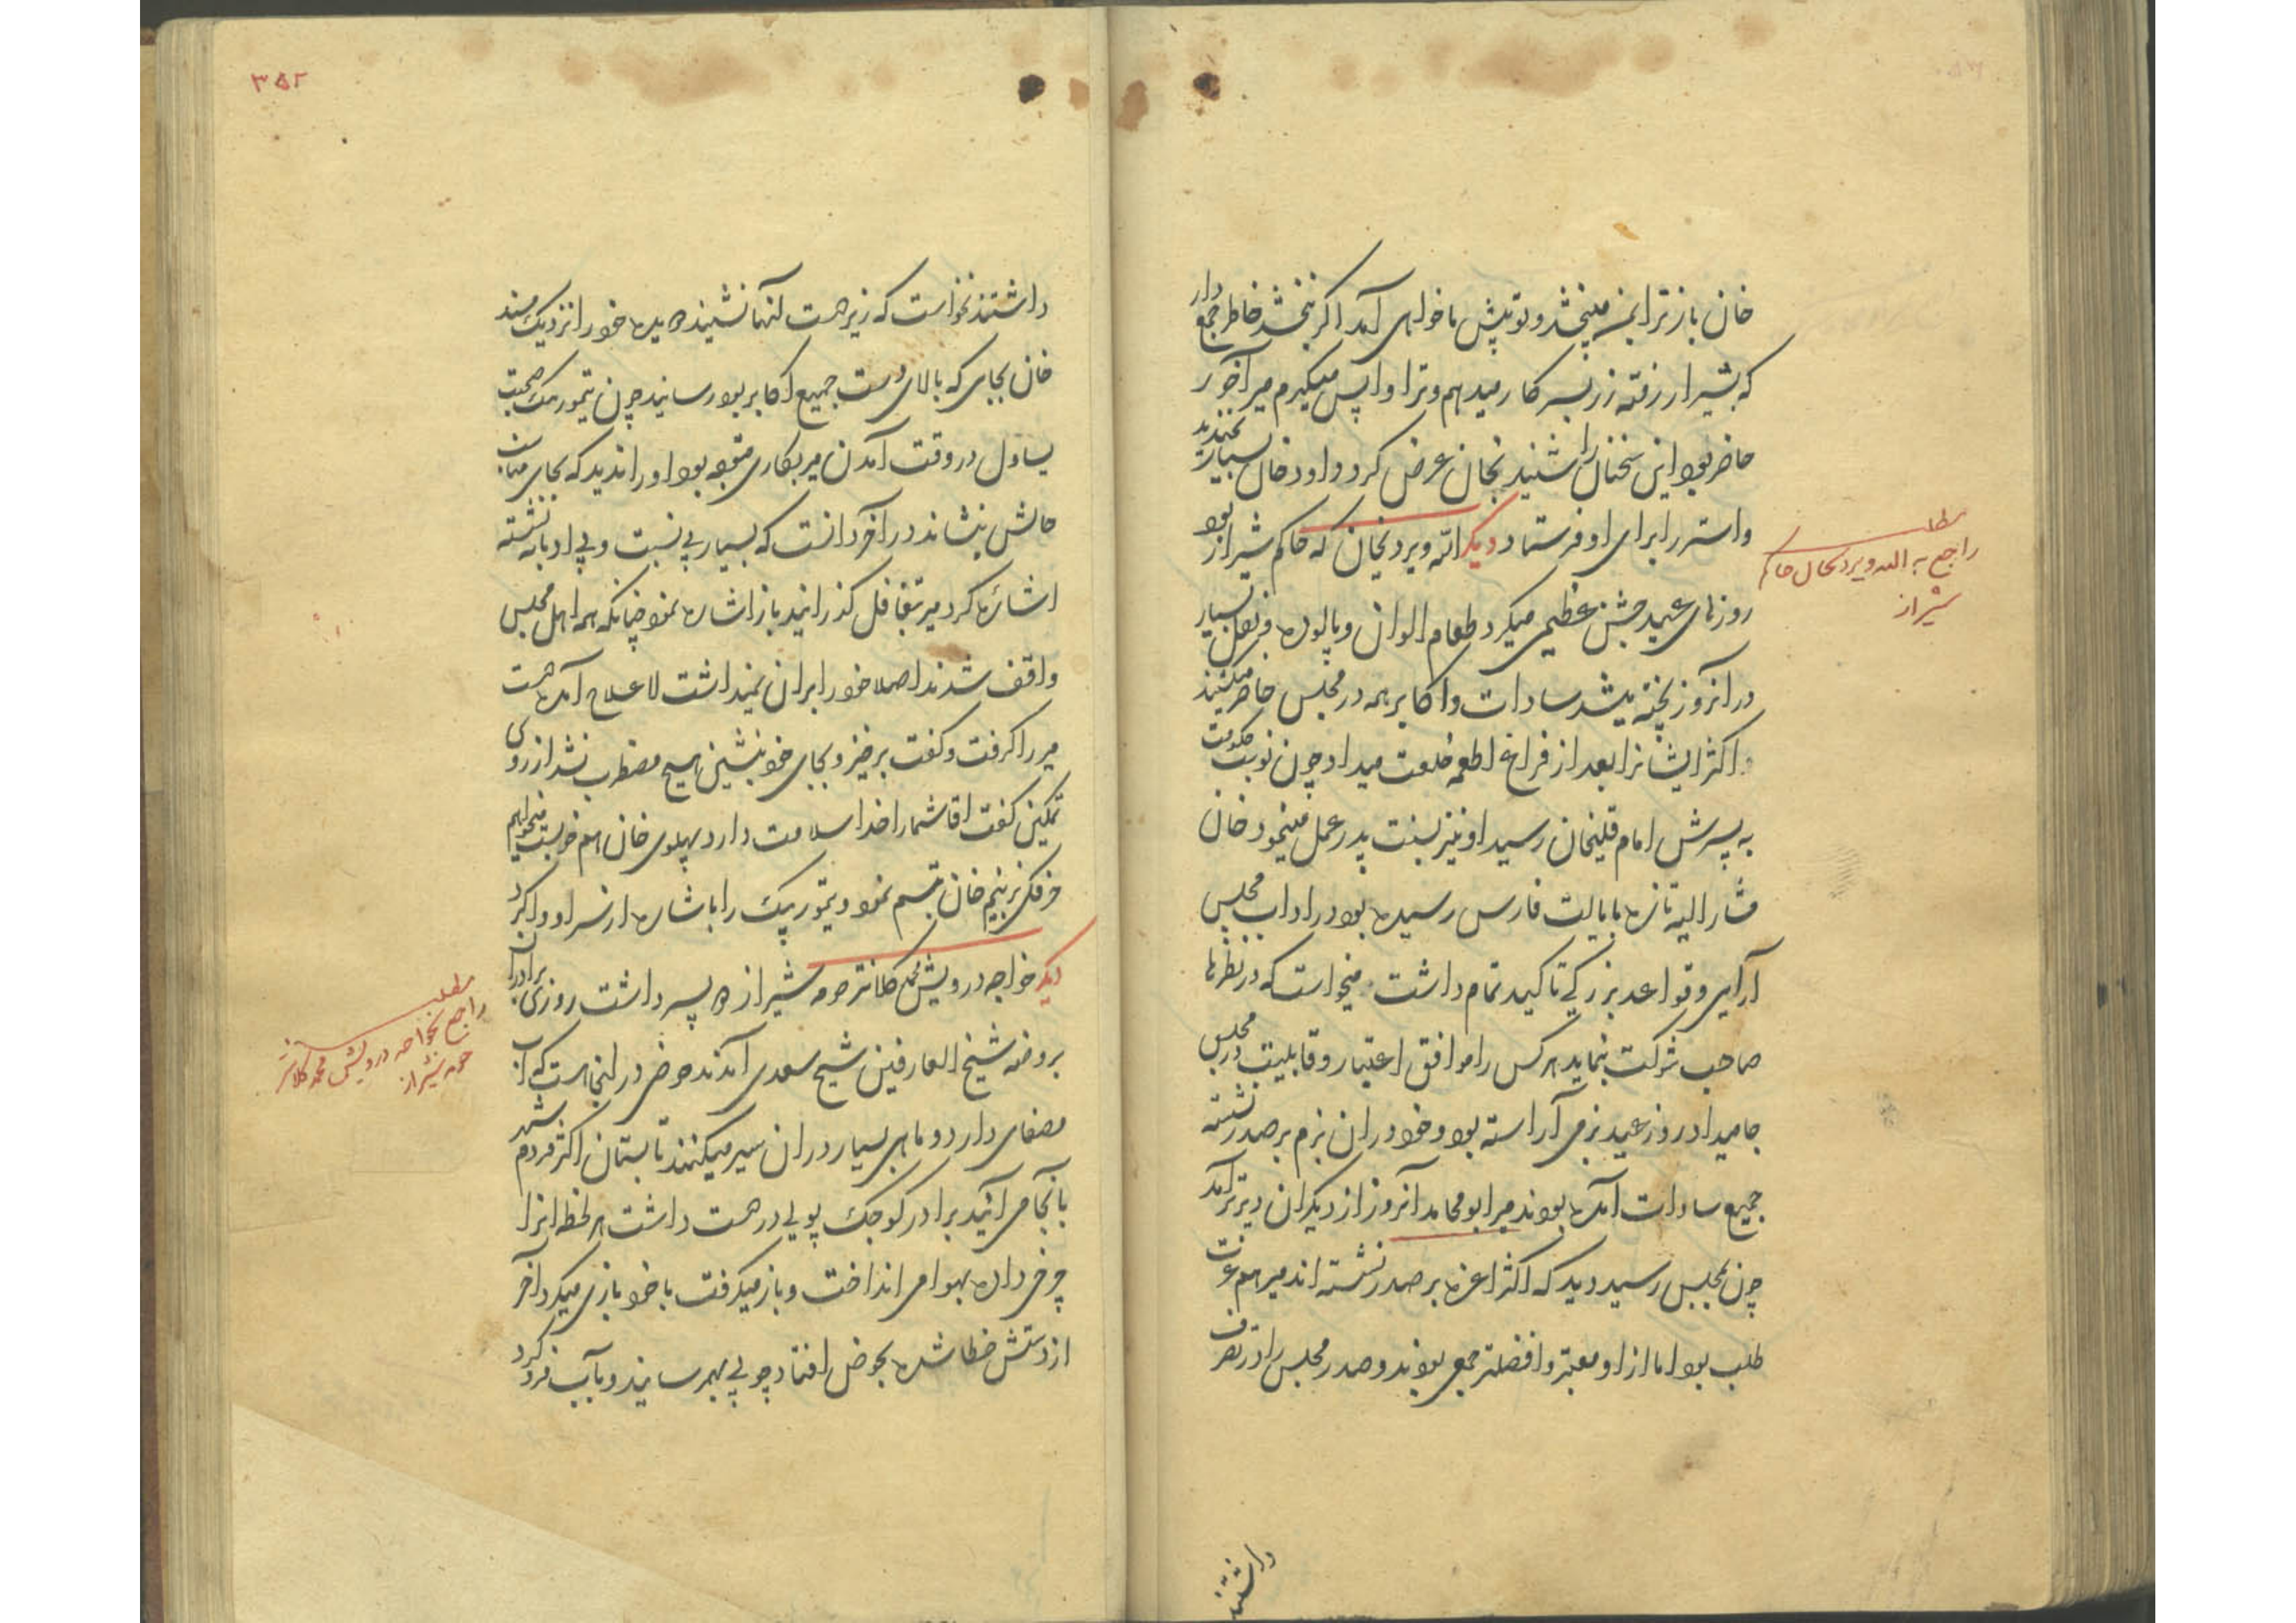 خان باز ترا بمن میبخشد و تو پیش ما خواهی آمد اکر نبخشد خاطر جمع دار
که بشیراز رفته زر بسرکار میدهم و ترا واپس میکیرم میر آخور
حاضر بود این سخنان را شنید بخان عرض کرد داود خان بسیار بخندید
و استر را برای او فرستاد دیکر الله ویردیخان که حاکم شیراز بود
روزهای عید جشن عظیمی میکرد طعام الوان و پالوده بسیار
در آنروز پخته میشد سادات و اکابر همه در مجلس حاضر میشدند
اکثر ایشانرا بعد از فراغ اطعمه خلعت میداد چون نوبت حکومت
به پسرش امام قلیخان رسید او نیز بسنت پدر عمل مینمود خان
مشار الیه تازه بایالت فارس رسیده بود در آداب مجلس
آرایی و قواعد بزرکی تاکید تمام داشت میخواست که در نظرها
صاحب شوکت نماید هر کس را موافق اعتبار و قابلیت در مجلس
جا میداد روز عید بزمی آراسته بود و خود در ان بزم بر صدر نشسته
جمیع سادات آمده بودند میر ابو محامد آنروز از دیکران دیرتر آمد
چون بمجلس رسید دید که اکثر اعزه بر صدر نشسته اند میر هم عزت
طلب بود اما ازو معتبر و افضلتر جمعی بودند و صدر مجلس را در تصرف
داشتند
مطلب
راجع به الله ویردیخان حاکم
شیراز
۳۵۲
داشتند نخواست که زیر دست آنها نشیند دویده خود را نزدیک مسند
خان بجای که بالای دست جمیع اکابر بود رسانید چون تیمور بیک صحبت
یساول در وقت آمدن میر بکاری متوجه بود او را ندید که بجای مناسب
حالش بنشاند در آخر دانست که بسیار بی نسبت و بی ادبانه نشسته
اشاره کرد میر بتغافل کذرانید باز اشاره نمود چنانکه همه اهل مجلس
واقف شدند اصلا خود را بران نمیداشت لاعلاج آمده دست
میر را کرفت و کفت برخیز و بجای خود بنشین هیچ مضطرب نشد از روی
تمکین کفت اقا شما را خدا سلامت دارد پهلوی خان هم خوبست میخواهم
خان تبسم نمود و تیمور بیک را باشاره از سر او وا کرد
دیکر خواجه درویش محمد کلانتر حومه شیراز ده پسر داشت روزی برادران
بروضه شیخ العارفین شیخ سعدی آمدند حوضی در اینجاست که آب
مصفای دارد و ماهی بسیار در ان سیر میکنند تابستان اکثر مردم شهر
بانجا می آیند برادر کوچک پولی در دست داشت هر لحظه انرا
چرخی داده بهوا می انداخت و باز میکرفت با خود بازی میکرد آخر
از دستش خطا شده بحوض افتاد چوبی بهم رسانید و بآب فرو کرد
مطلب
راجع بخواجه درویش محمد کلانتر
حومه شیراز